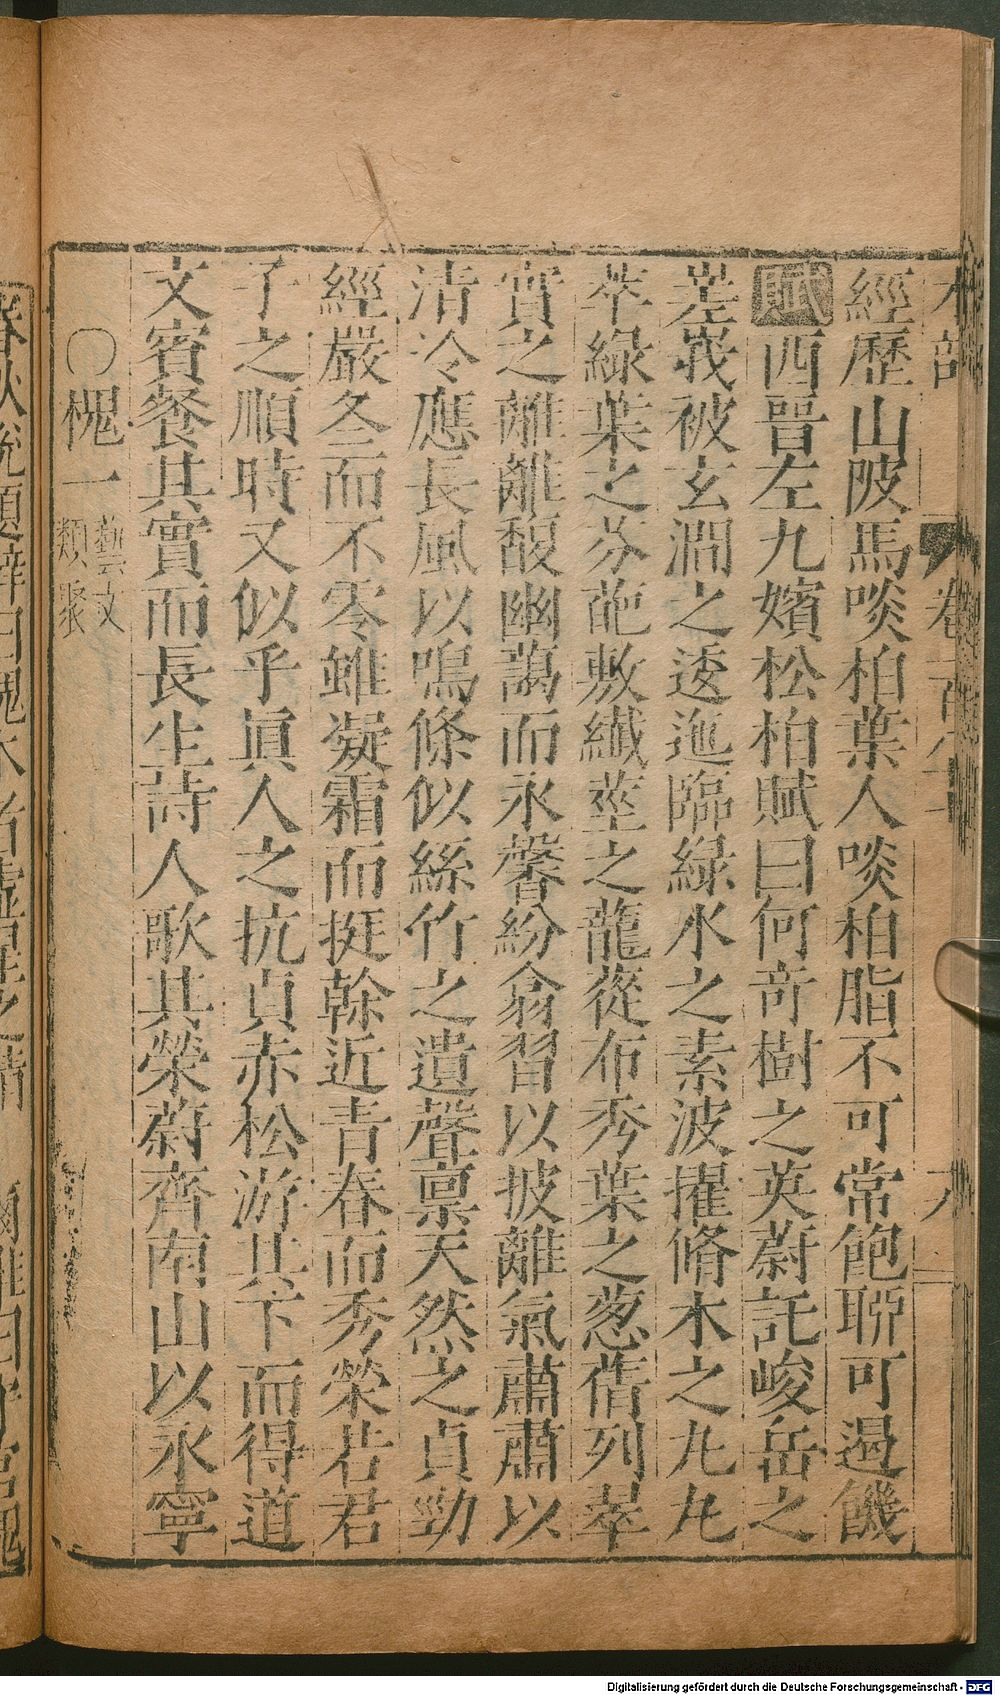 木部
經歷山陂馬啖柏葉人啖柏脂不可常飽聊可遏饑
賦西晉左九嬪松柏賦曰何竒樹之英蔚託峻岳之
嵳峩被玄澗之逶迤臨綠水之素波擢脩木之丸丸
萃綠葉之芬葩敷纖莖之蘢蓯布秀葉之葱蒨列翠
實之離離馥幽藹而永馨紛翕習以披離氣肅肅以
清冷應長風以鳴條似絲竹之遺聲禀天然之貞勁
經嚴冬而不零雖凝霜而挺幹近青春而秀榮若君
子之順時又似乎眞人之抗貞赤松游其下而得道
文賓餐其實而長生詩人歌其榮蔚齊南山以永寧
○槐一藝文類聚
Digitalisierung gefördert durch die Deutsche Forschungsgemeinschaft - DFG